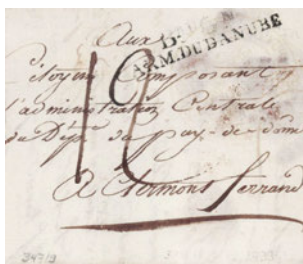 Aux
ARM. DU DANUBE
Citoyens Composant
l'administration Centrale
du Dépt. du puy-de-dome
A Clermont ferrand
34719